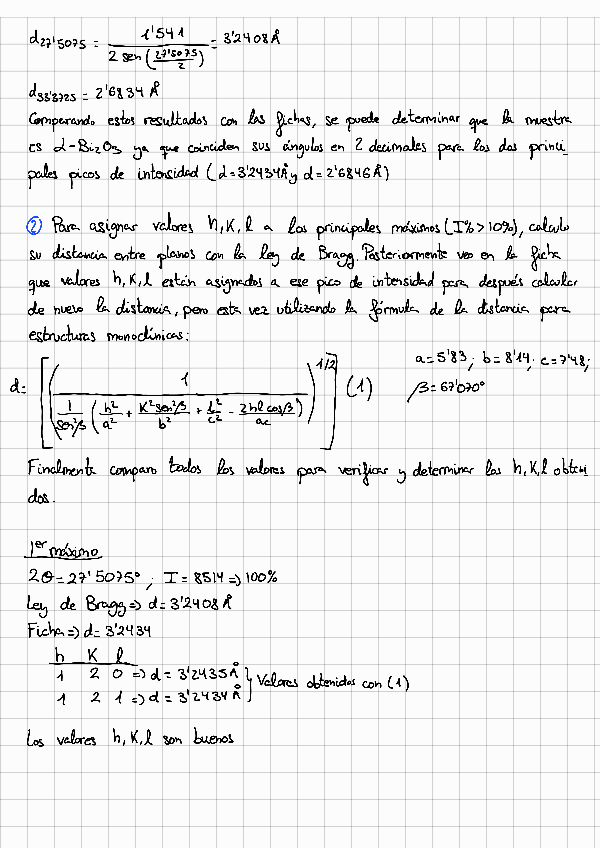 d27'5075 = 1'541 / 2 sen(27'5075/2) = 3'2408 Å
d33'3725 = 2'6834 Å
Comparando estos resultados con las fichas, se puede determinar que la muestra
es α-Bi2O3 ya que coinciden sus ángulos en 2 decimales para los dos princi_
pales picos de intensidad (d=3'2434Å y d=2'6846Å)
② Para asignar valores h,K,l a los principales máximos (I%>10%), calculo
su distancia entre planos con la ley de Bragg. Posteriormente veo en la ficha
que valores h,K,l están asignados a ese pico de intensidad para después calcular
de nuevo la distancia, pero esta vez utilizando la fórmula de la distancia para
estructuras monoclínicas:
d= [(1 / (1/sen²β (h²/a² + K² sen²β/b² + l²/c² - 2hl cosβ/ac)))^1/2] (1)
a=5'83; b=8'14; c=7'48;
β=67'070°
Finalmente comparo todos los valores para verificar y determinar los h,K,l obteni
dos.
1er máximo
2θ=27'5075°; I=8514=>100%
Ley de Bragg=> d=3'2408 Å
Ficha=> d=3'2434
h K l
1 2 0 => d=3'2435Å
1 2 1 => d=3'2434Å } Valores obtenidos con (1)
Los valores h,K,l son buenos